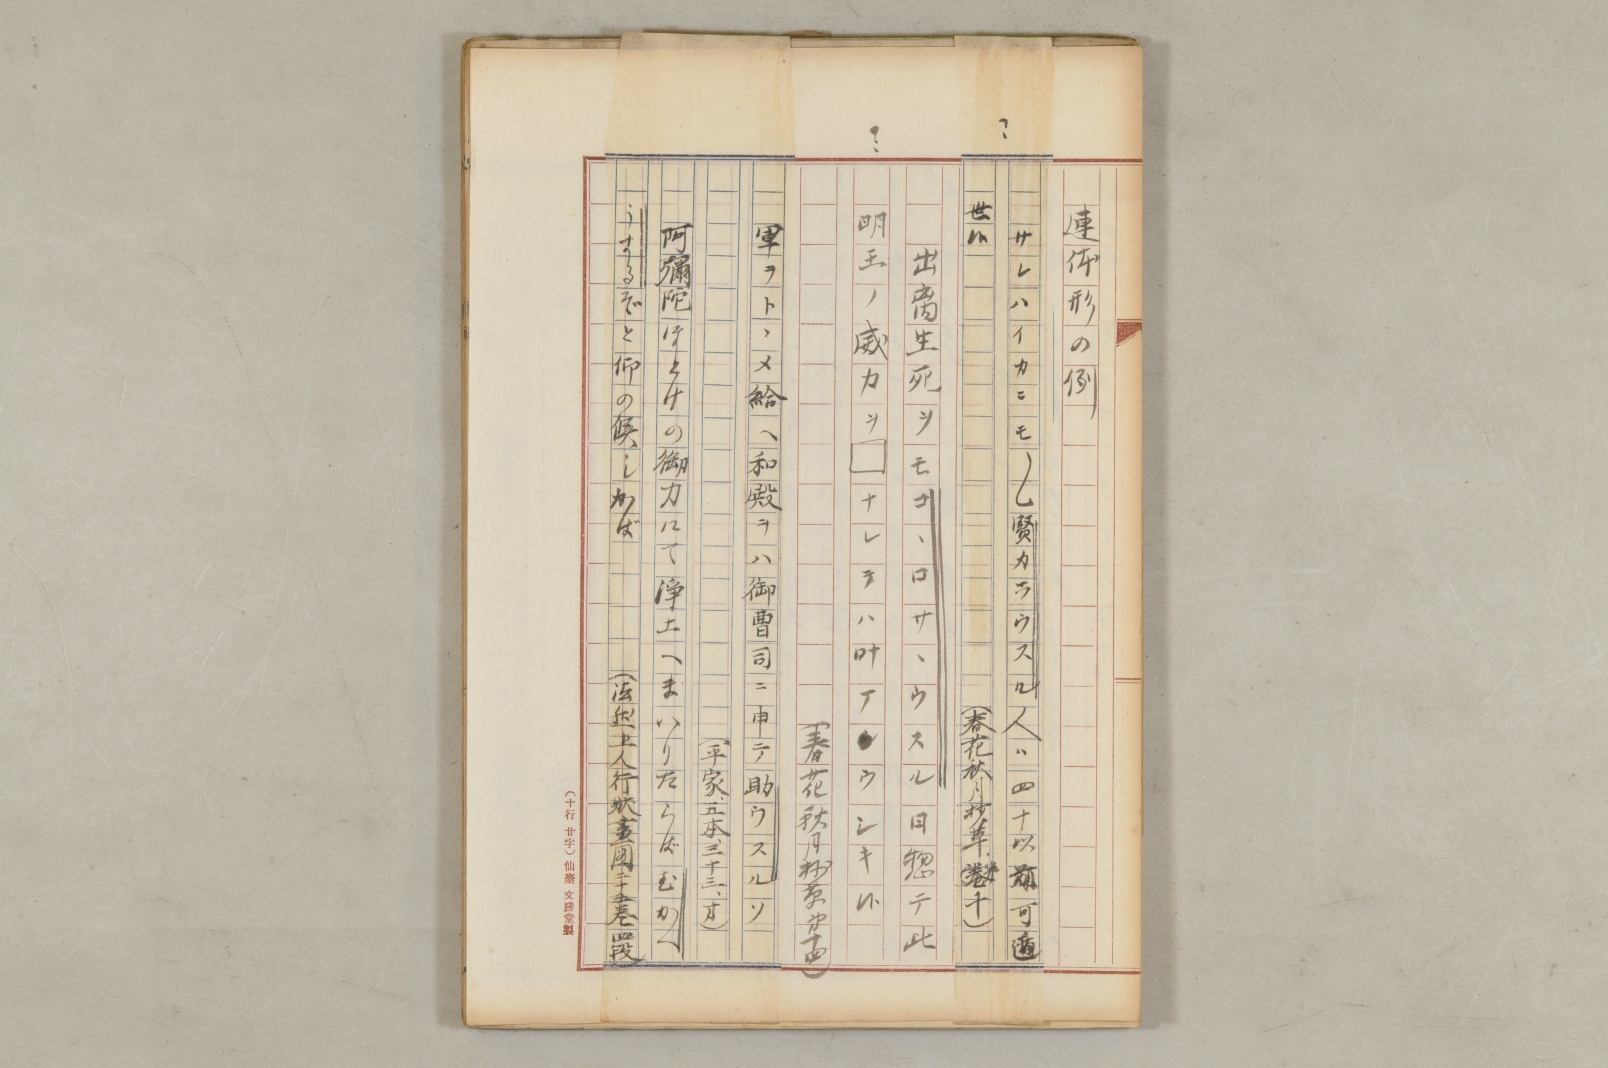 連体形の例
サレハイカニモシ賢カラウスル人ハ四十以前可遁
世
(春花秋月抄草、巻十)
出离生死シモコヽロサヽウスル日惣テ此
明王ノ威力シ□ナレテハ叶アウシキ
(春花秋月抄草第十四)
軍ヲトヽメ給ヘ和殿ヲハ御曹司ニ申テ助ウスルソ
(平家、五本、三十三、オ)
阿彌陀ほとけの御力にて浄土へまいりたらばむかへ
うするぞと仰の候しかば
(法然上人行状畫圖二十五巻四段)
(十行 廿字) 仙臺 文勝堂製